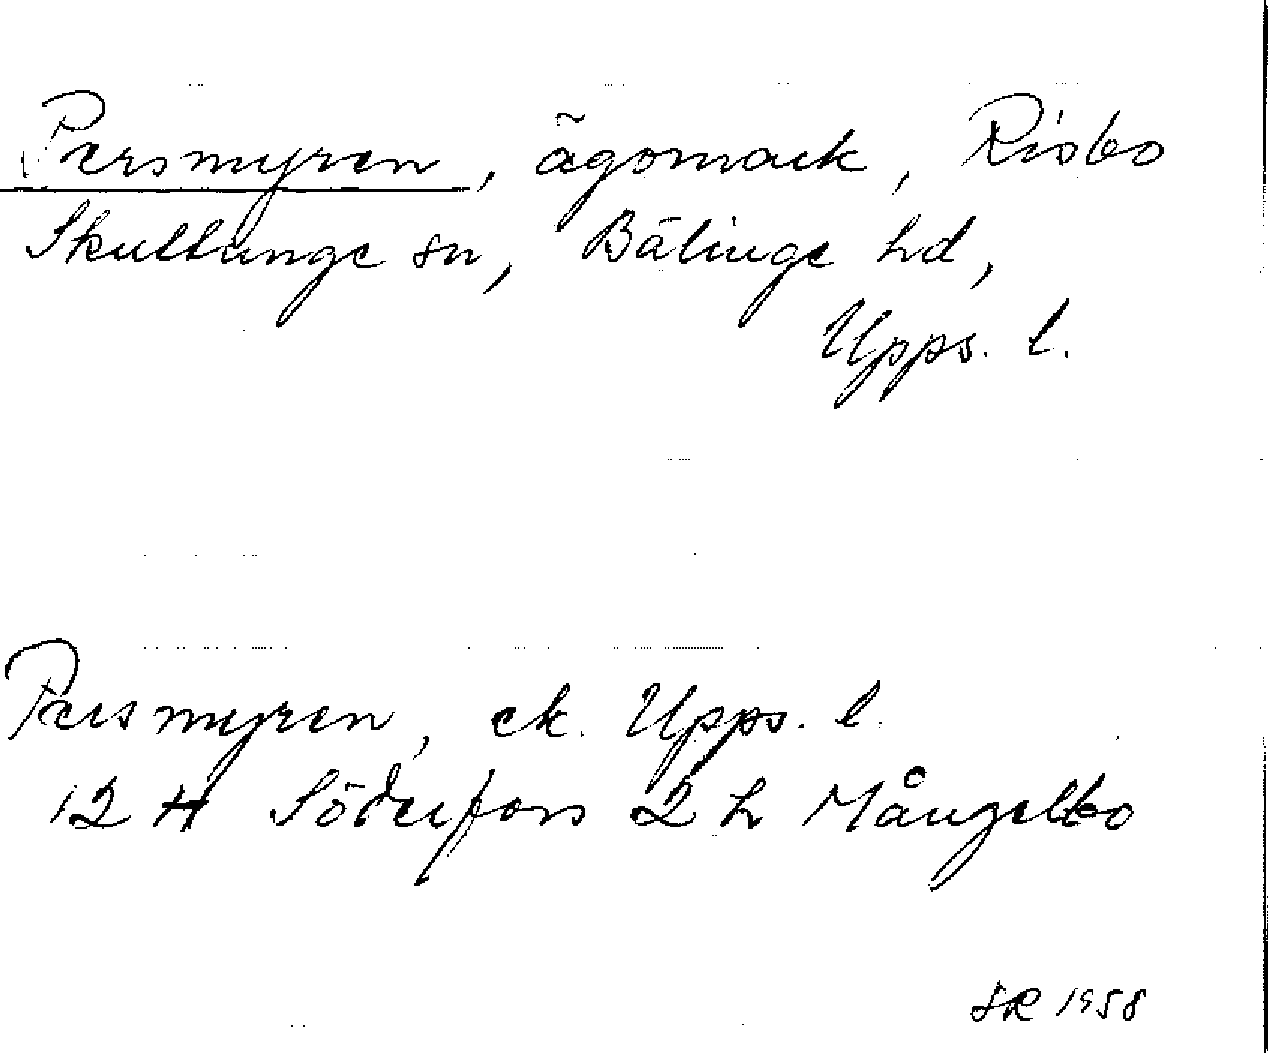 Persmyren, ägomark, Risbo
Skuttunge sn, Bälinge hd,
Upps. l.
Persmyren, ek. Upps. l.
12 H Söderfors 2 h Mångelbo
SR 1958